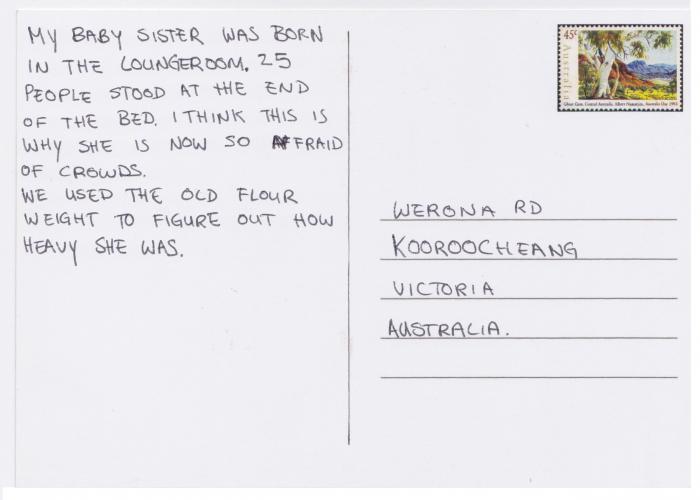 MY BABY SISTER WAS BORN
IN THE LOUNGEROOM. 25
PEOPLE STOOD AT THE END
OF THE BED. I THINK THIS IS
WHY SHE IS NOW SO AFRAID
OF CROWDS.
WE USED THE OLD FLOUR
WEIGHT TO FIGURE OUT HOW
HEAVY SHE WAS.
45c
Australia
Ghost Gum, Central Australia, Albert Namatjira, Australia Day 1993
WERONA RD
KOOROOCHEANG
VICTORIA
AUSTRALIA.